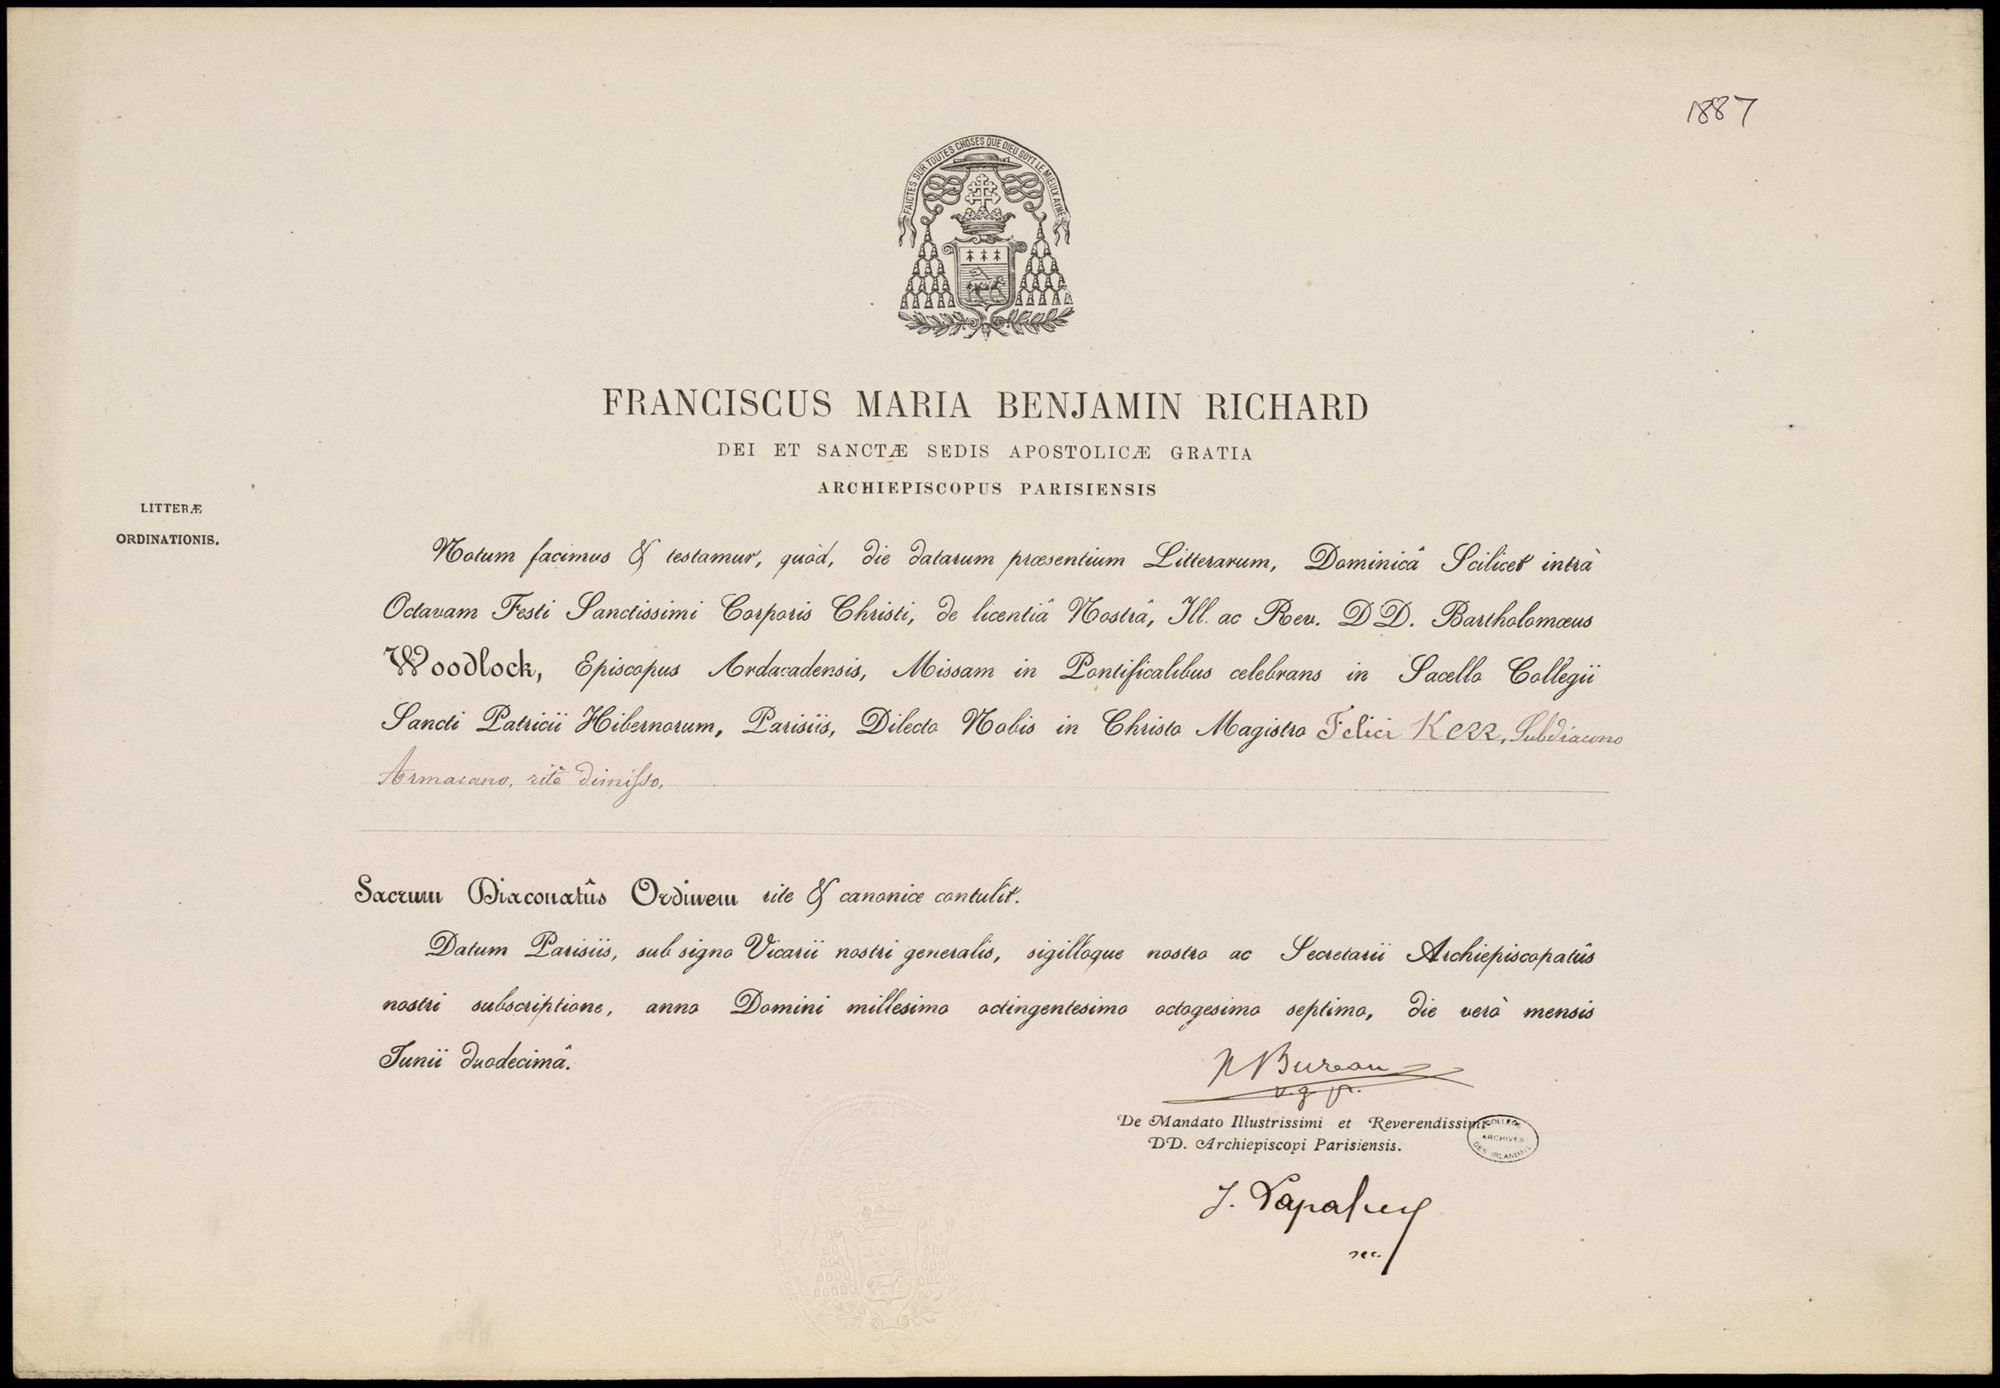 1887
FAICTES SUR TOUTES CHOSES QUE DIEU SOYT LE MIEULX AYMÉ
FRANCISCUS MARIA BENJAMIN RICHARD
DEI ET SANCTÆ SEDIS APOSTOLICÆ GRATIA
ARCHIEPISCOPUS PARISIENSIS
LITTERÆ
ORDINATIONIS.
Notum facimus & testamur, quòd, die datarum præsentium Litterarum, Dominicâ Scilicet intrà
Octavam Festi Sanctissimi Corporis Christi, de licentiâ Nostrâ, Ill. ac Rev. DD. Bartholomæus
Woodlock, Episcopus Ardacadensis, Missam in Pontificalibus celebrans in Sacello Collegii
Sancti Patricii Hibernorum, Parisiis, Dilecto Nobis in Christo Magistro Felici Kerr, Subdiacono
Armacano, ritè dimisso,
Sacrum Diaconatûs Ordinem rite & canonice contulit.
Datum Parisiis, sub signo Vicarii nostri generalis, sigilloque nostro ac Secretarii Archiepiscopatûs
nostri subscriptione, anno Domini millesimo octingentesimo octogesimo septimo, die verò mensis
Junii duodecimâ.
Bureau
v.g.
De Mandato Illustrissimi et Reverendissimi
DD. Archiepiscopi Parisiensis.
COLLEGE
ARCHIVES
DES IRLANDAIS
J.
sec.